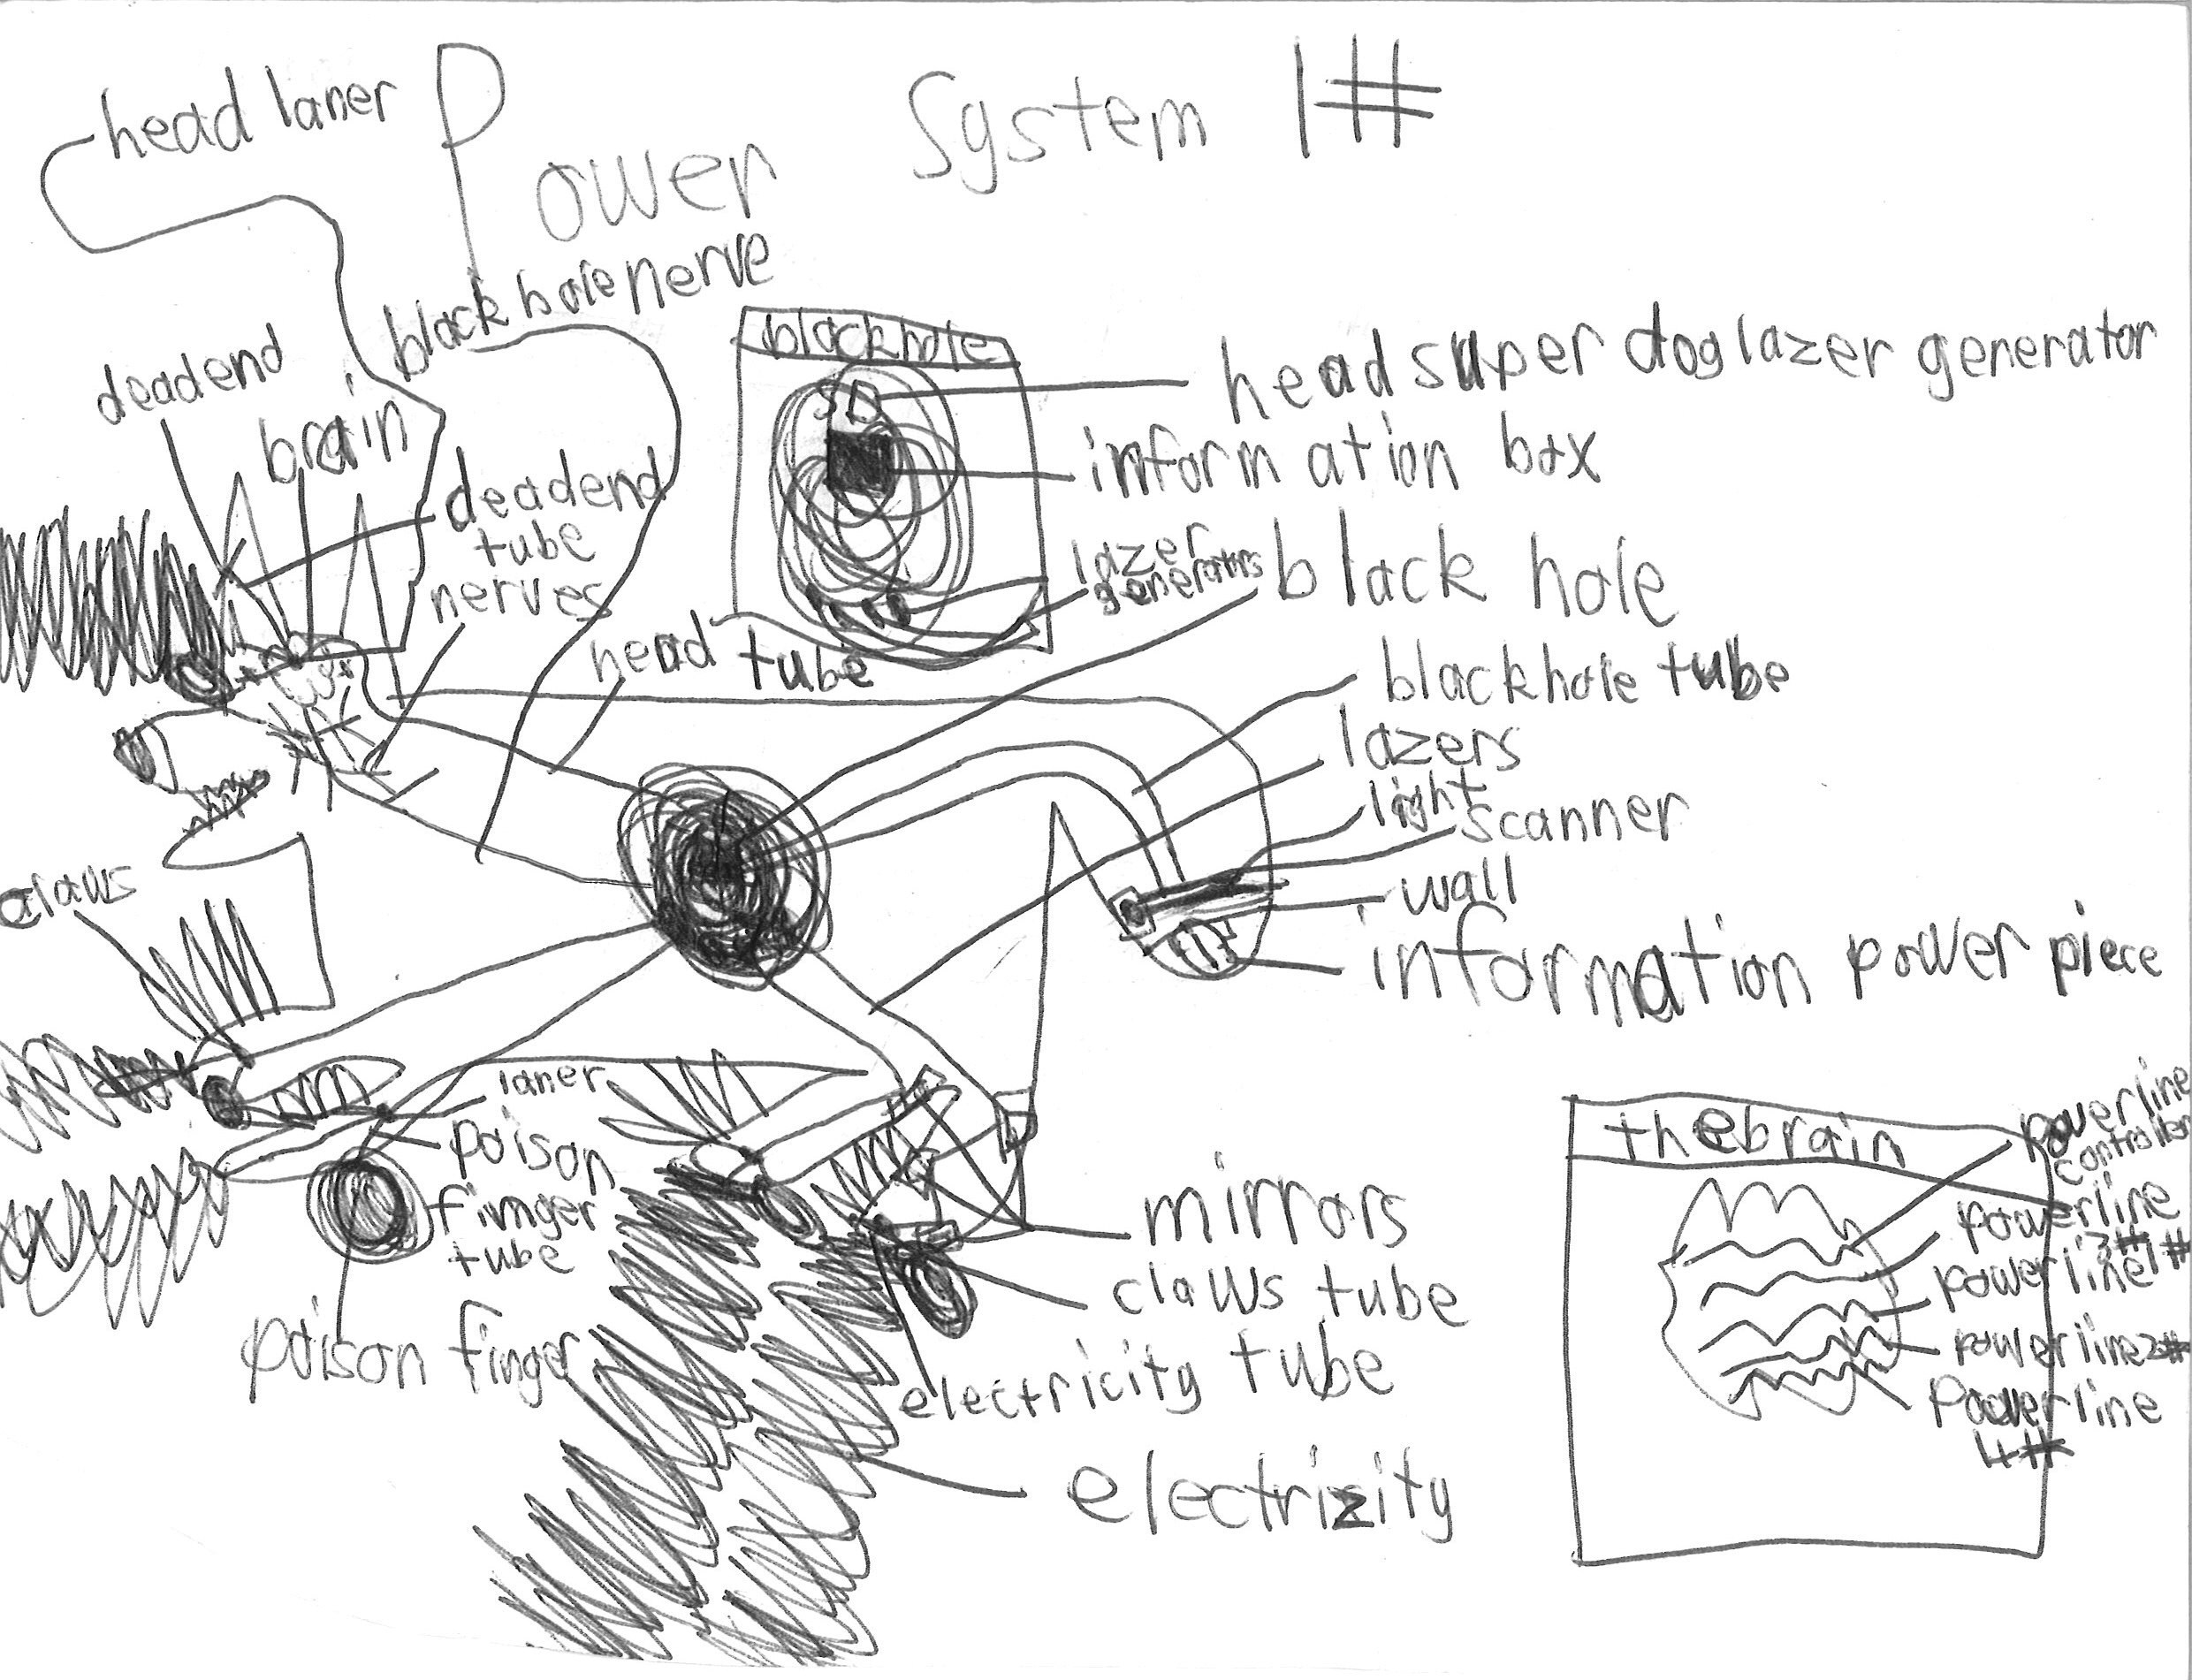 head laner
Power System 1#
black hole nerve
deadend
brain
deadend
tube
nerves
head tube
blackhole
SD
head super dog lazer generator
information box
lazer
generators
black hole
blackhole tube
lazers
light
scanner
wall
information power piece
claws
laner
poison
fimger
tube
poison finger
mirrors
claws tube
electricity tube
electrizity
thebrain
powerline
controller
powerline
3#
powerline1#
powerline2#
Powerline
4#